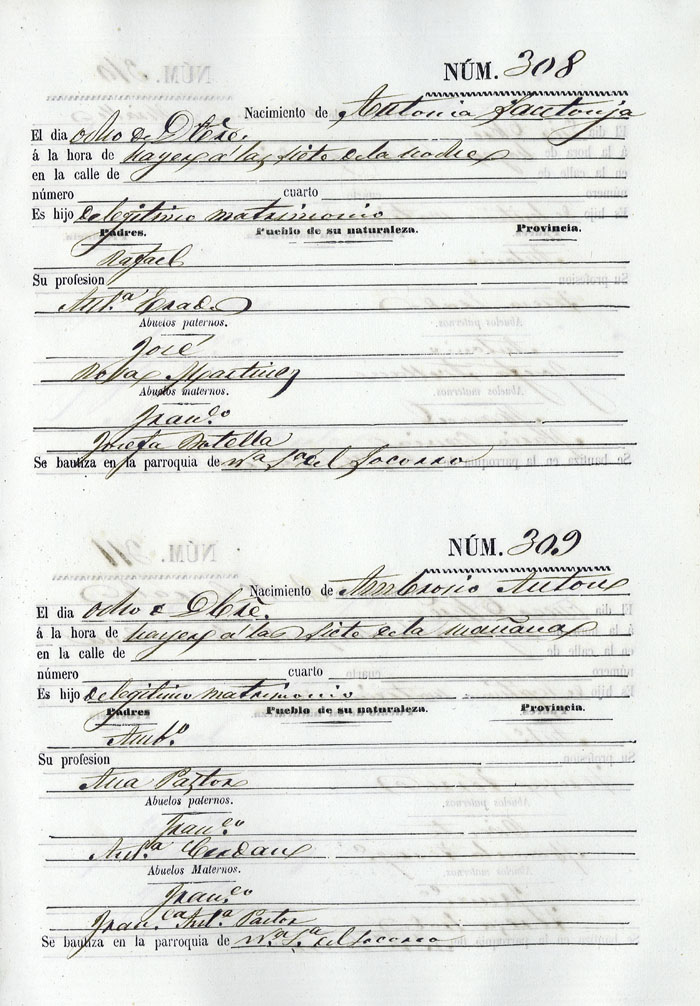 NÚM. 308
Nacimiento de Antonia Santonja
El dia ocho de Dbre.
á la hora de hayer á las siete de la noche
en la calle de
número cuarto
Es hijo de legitimo matrimonio
Padres. Pueblo de su naturaleza. Provincia.
Rafael
Su profesion
Ant.a
Abuelos paternos.
José
Rosa Martinez
Abuelos maternos.
Fran.co
Josefa Botella
Se bautiza en la parroquia de N.a S.a del Socorro
NÚM. 309
Nacimiento de Ambrosio Anton
El dia ocho Dbre.
á la hora de hayer á las siete de la mañana
en la calle de
número cuarto
Es hijo de legitimo matrimonio
Padres Pueblo de su naturaleza. Provincia.
Amb.o
Su profesion
Ana Pastor
Abuelos paternos.
Fran.co
Ant.a
Abuelos Maternos.
Fran.co
Fran.ca Ant.a Pastor
Se bautiza en la parroquia de N.a S.a del Socorro